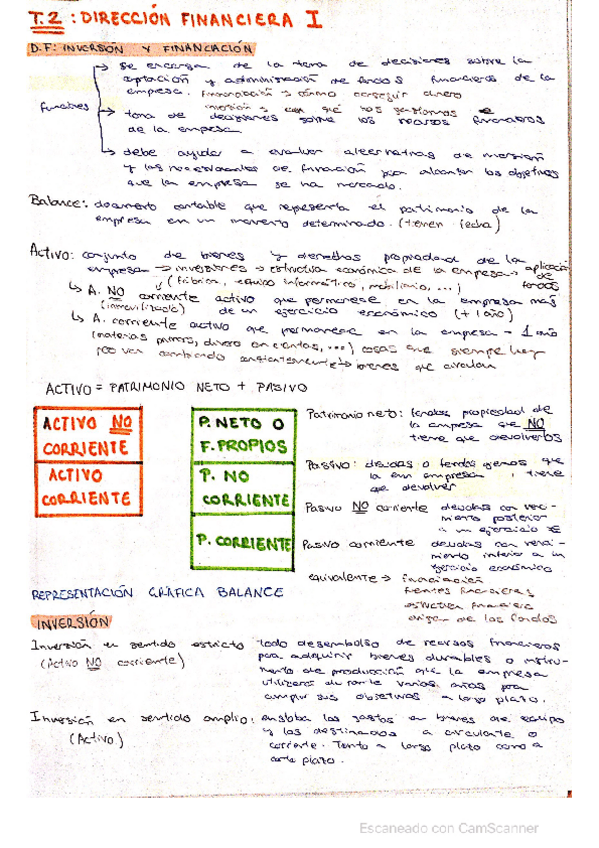 T.2: DIRECCIÓN FINANCIERA I
D.F: INVERSIÓN Y FINANCIACIÓN
funciones
→ se encarga de la toma de decisiones sobre la
captación y administración de fondos financieros de la
empresa. financiación → cómo conseguir dinero
inversión → con qué los gastamos
→ toma de decisiones sobre los recursos financieros
de la empresa
→ debe ayudar a evaluar alternativas de inversión
y las necesidades de financiación para alcanzar los objetivos
que la empresa se ha marcado.
Balance: documento contable que representa el patrimonio de la
empresa en un momento determinado. (tienen fecha)
Activo: conjunto de bienes y derechos propiedad de la
empresa → inversiones → estructura económica de la empresa → aplicación de fondos
(fábrica, equipo informático, mobiliario, ...)
↳ A. NO corriente activo que permanece en la empresa más
(inmovilizado) de un ejercicio económico (+1 año)
↳ A. corriente activo que permanece en la empresa - 1 año
(materias primas, dinero en cuentas, ...) cosas que siempre hay
pero van cambiando constantemente → bienes que circulan
ACTIVO = PATRIMONIO NETO + PASIVO
ACTIVO NO
CORRIENTE
ACTIVO
CORRIENTE
P. NETO O
F. PROPIOS
P. NO
CORRIENTE
P. CORRIENTE
Patrimonio neto: fondos propiedad de
la empresa que NO
tiene que devolverlos
Pasivo: deudas o fondos ajenos que
la empresa tiene
que devolver
Pasivo NO corriente deudas con venci-
miento posterior
a un ejercicio
Pasivo corriente deudas con venci-
miento inferior a un
ejercicio económico
equivalente → financiación
fuentes financieras
estructura financiera
origen de los fondos
REPRESENTACIÓN GRÁFICA BALANCE
INVERSIÓN
Inversión en sentido estricto todo desembolso de recursos financieros
(Activo NO corriente) para adquirir bienes durables o instru-
mento de producción que la empresa
utilizará durante varios años para
cumplir sus objetivos a largo plazo.
Inversión en sentido amplio: engloba los gastos en bienes de equipo
(Activo) y los destinados a circulante o
corriente. Tanto a largo plazo como a
corto plazo.
Escaneado con CamScanner